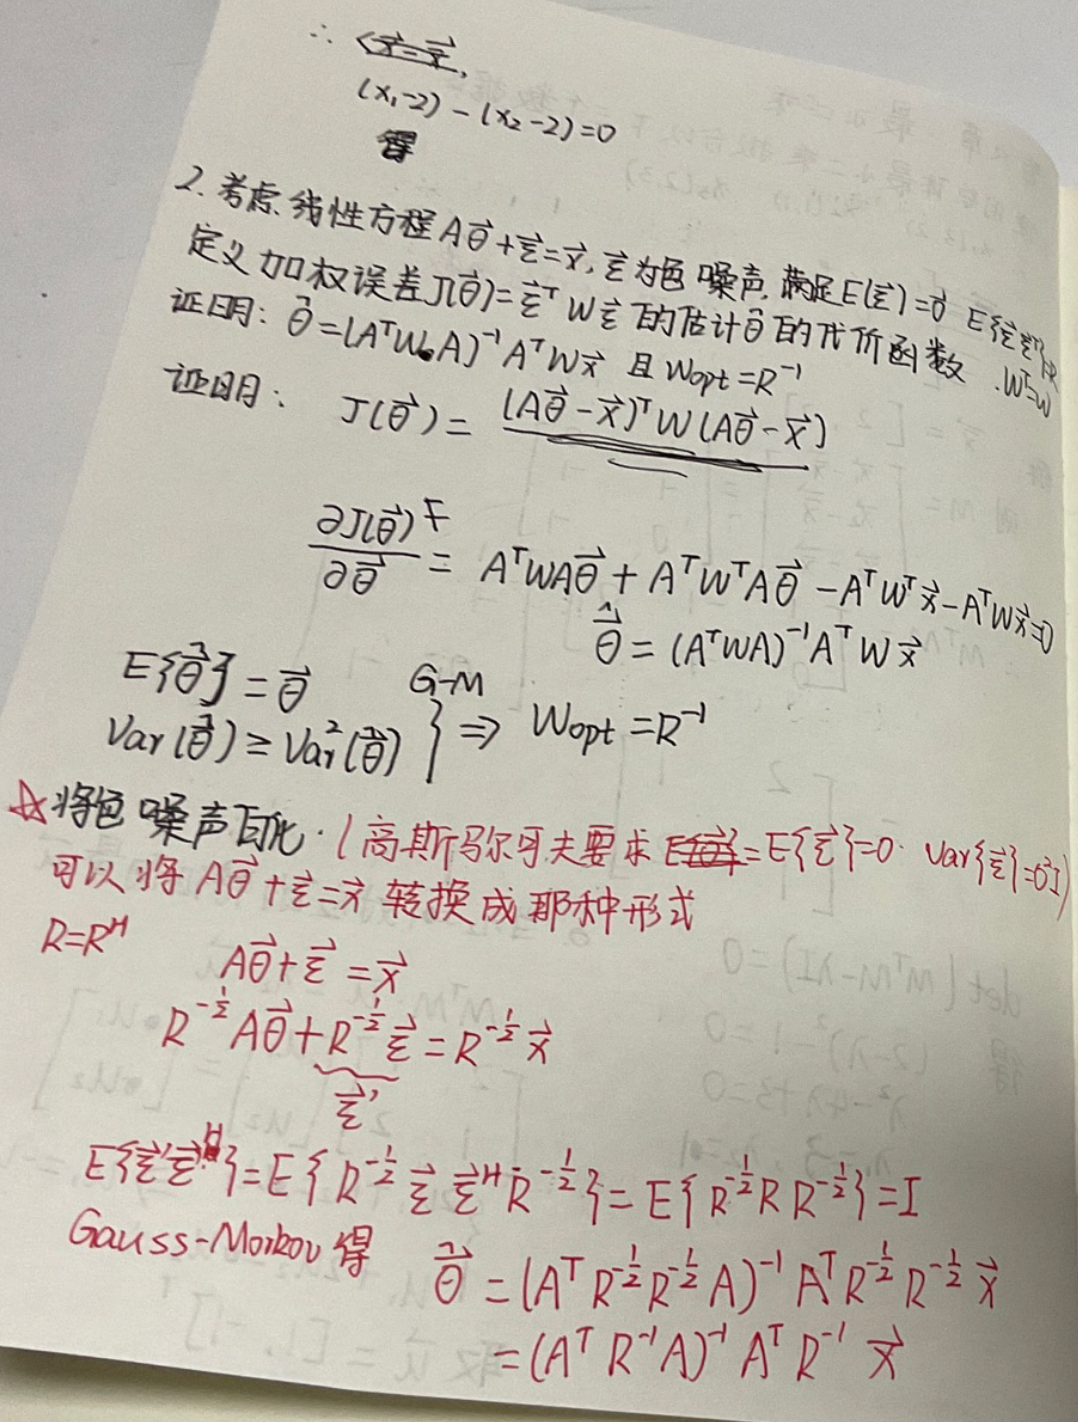 ∴ <x⃗-x⃗,
(x₁-2) - (x₂-2)=0
得
2. 考虑线性方程Aθ⃗+ε⃗=x⃗, ε⃗为色噪声,满足E(ε⃗)=0⃗ E{ε⃗ε⃗ᵀ}=R
定义加权误差J(θ⃗)=ε⃗ᵀWε⃗的估计θ⃗的代价函数. Wᵀ=W
证明: θ̂⃗=(AᵀWA)⁻¹AᵀWx⃗ 且 Wopt=R⁻¹
证明: J(θ⃗)= (Aθ⃗-x⃗)ᵀW(Aθ⃗-x⃗)
∂J(θ⃗)/∂θ⃗ = AᵀWAθ⃗ + AᵀWᵀAθ⃗ - AᵀWᵀx⃗ - AᵀWx⃗=0
θ̂⃗ = (AᵀWA)⁻¹Aᵀ W x⃗
E{θ̂⃗} = θ⃗ G-M
Var(θ̂⃗) ≥ Var²(θ̂⃗) } ⇒ Wopt =R⁻¹
☆将色噪声白化. (高斯马尔可夫要求 E{θ⃗}=E{ε⃗}=0. Var{ε⃗}=σ²I)
可以将 Aθ⃗+ε⃗=x⃗ 转换成那种形式
R=Rᴴ
Aθ⃗+ε⃗=x⃗
R^{-1/2}Aθ⃗+R^{-1/2}ε⃗=R^{-1/2}x⃗
ε⃗'
E{ε⃗'ε⃗'ᴴ}=E{R^{-1/2}ε⃗ ε⃗ᴴR^{-1/2}}=E{R^{-1/2}R R^{-1/2}}=I
Gauss-Markov 得 θ̂⃗ =(AᵀR^{-1/2}R^{-1/2}A)⁻¹AᵀR^{-1/2}R^{-1/2}x⃗
=(AᵀR⁻¹A)⁻¹AᵀR⁻¹x⃗